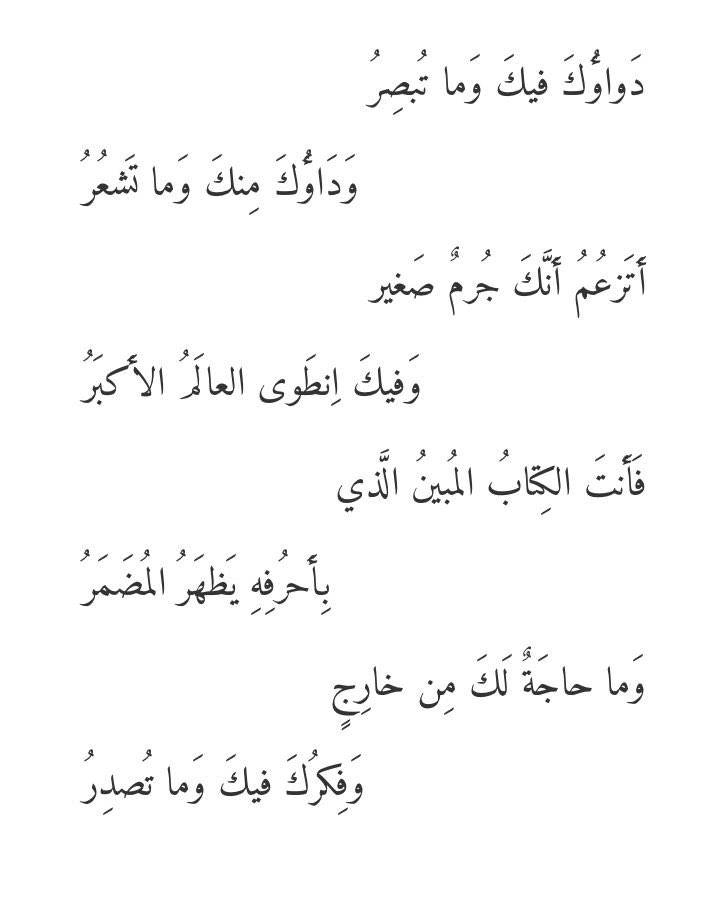 دَواؤُكَ فيكَ وَما تُبصِرُ
وَدَاؤُكَ مِنكَ وَما تَشعُرُ
أَتَزعُمُ أَنَّكَ جُرمٌ صَغير
وَفيكَ اِنطَوى العالَمُ الأَكبَرُ
فَأَنتَ الكِتابُ المُبينُ الَّذي
بِأَحرُفِهِ يَظهَرُ المُضمَرُ
وَما حاجَةٌ لَكَ مِن خارِجٍ
وَفِكرُكَ فيكَ وَما تُصدِرُ